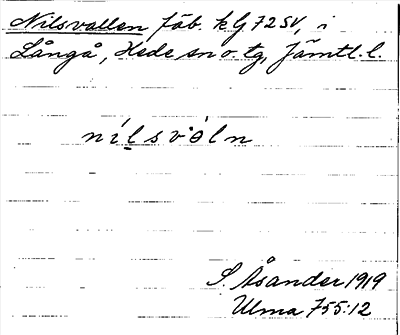 Nilsvallen fäb. kbl 72 SV, i
Långå, Hede sn o. tg, Jämtl. l.
nílsvàln
S. Åsander 1919
Ulma 755:12